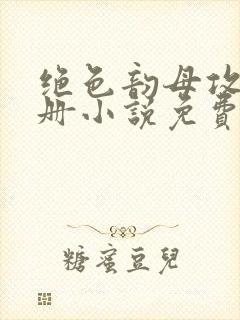 绝色韵母攻
册小说免費
糖蜜豆兒